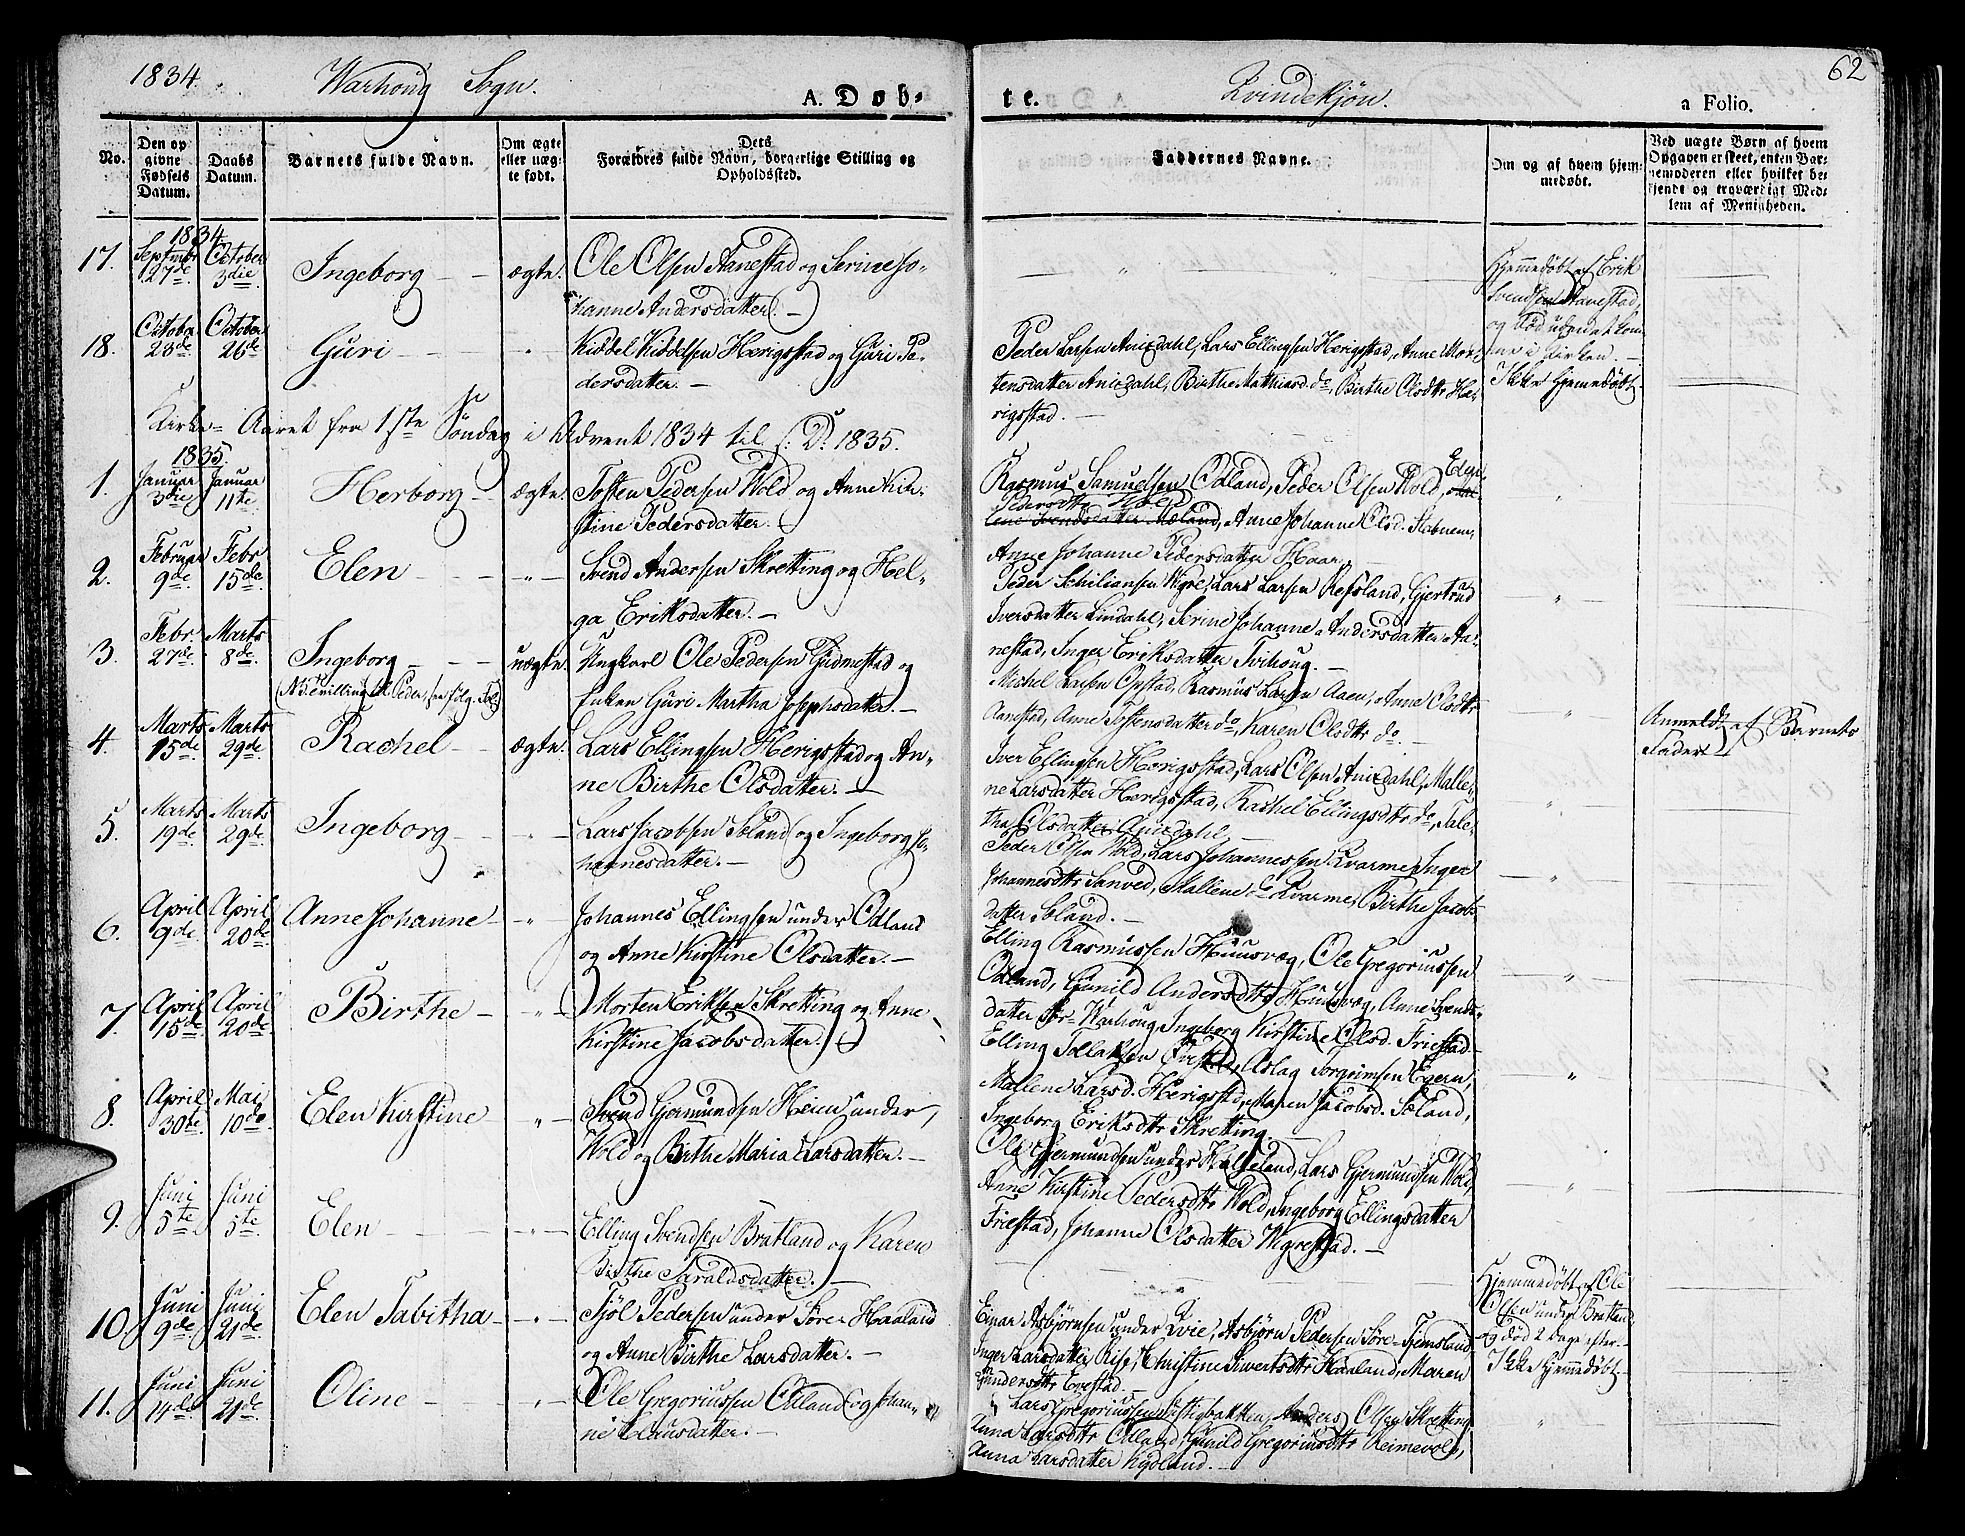 1834. Warhoug Sogn. A. Døb-
te. Qvindekjøn. a Folio. 62
No.
Den op
givne
Fødsels
Datum.
Daabs
Datum.
Barnets fulde Navn.
Om ægte
eller uæg-
te født.
Dets
Forældres fulde Navn, borgerlige Stilling og
Opholdssted.
Faddernes Navne.
Om og af hvem hjem-
medøbt.
Ved uægte Børn af hvem
Opgaven er skeet, enten Bar-
nemoderen eller hvilket be-
kjendt og troværdigt Med-
lem af Menigheden.
1834
17. Septmbr 27de October 3die Ingeborg ægte. Ole Olsen Aanestad og Serine Jo-
hanne Andersdatter. -
Hjemmedøbt af Erik
Svendsen Aanestad,
og død uden at kom-
me i Kirken. -
18. October 23de October 26de Guri " Kiddel Kiddelsen Herigstad og Guri Pe-
dersdatter. -
Peder Larsen Anixdahl, Lars Ellingsen Herigstad, Anne Mor-
tensdatter Anixdahl, Birthe Mathiasd. do, Birthe Olsdtr He-
rigstad. -
Ikke hjemmedøbt
Kirke-Aaret fra 1ste Søndag i Advent 1834 til s. D. 1835.
1835.
1. Januar 3die Januar 11te Herborg ægte. Tosten Pedersen Wold og Anne Kir-
stine Pedersdatter. -
Rasmus Samuelsen Odland, Peder Olsen Wold,
Pedersdtr
Svendsdatter Æland, Anne Johanne Olsd. Stabnem,
Anne Johanne Pedersdatter Haar. -
2. Februar 9de Febr 15de Elen " Svend Andersen Skretting og Hel-
ga Eriksdatter. -
Peder Schiliansen Wigre, Lars Larsen Refsland, Gjertrud
Iversdatter Lindahl, Serine Johanne Andersdatter Aa-
nestad, Inger Eriksdatter Tvihoug. -
3. Febr. 27de Marts 8de Ingeborg uægte. Ungkarl Ole Pedersen Gudmestad og
Enken Guri Martha Josephsdatter. -
(NB. Tvilling til Peder, see følg. Fol.)
Michel Larsen Opstad, Rasmus Larsen Aaen, Anne Olsdtr
Aanestad, Anne Tostensdatter do, Karen Olsdtr do. -
Anmeldt af Barnets
Fader
4. Marts 15de Marts 29de Rachel ægte. Lars Ellingsen Herigstad og An-
ne Birthe Olsdatter. -
Iver Ellingsen Herigstad, Lars Olsen Anixdahl, Malle-
ne Larsdatter Herigstad, Rachel Ellingsdtr do, Tale-
tha Olsdatter Anixdahl. -
5. Marts 19de Marts 29de Ingeborg " Lars Jacobsen Æland og Ingeborg Jo-
hannesdatter. -
Peder Olsen Wold, Lars Johannessen Kvarme, Inger
Johannesdtr Sanved, Mallene do Kvarme, Birthe Jacobs-
datter Æland. -
6. April 9de April 20de Anne Johanne " Johannes Ellingsen under Odland
og Anne Kirstine Olsdatter. -
Elling Rasmussen Huusvæg, Ole Gregoriussen
Odland, Gunild Andersdtr Huusvæg, Anne Svends-
datter Sør-Warhoug, Ingeborg Kirstine Olsd. Friestad
7. April 15de April 20de Birthe " Morten Eriksen Skretting og Anne
Kirstine Jacobsdatter.
Elling Tollaksen Friestad, Aslag Torgrimsen Egern,
Mallene Larsd. Herigstd, Maren Jacobsd. Æland,
Ingeborg Eriksdtr Skretting. -
8. April 30te Mai 10de Elen Kirstine " Svend Gjermundsen Heien under
Wold og Birthe Maria Larsdatter. -
Ole Gjermundsen under Hælleland, Lars Gjermundsen Wold,
Anne Kirstine Pedersdtr Wold, Ingeborg Ellingsdatter
Friestad, Johanne Olsdatter Wigrestad. -
9. Juni 5te Juni 5te Elen " Elling Svendsen Bratland og Karen
Birthe Taraldsdatter. -
Hjemmedøbt af Ole
Olsen under Bratland
og død 2 Dage efter. -
10. Juni 9de Juni 21de Elen Tabitha " Tjøl Pedersen under Søre-Haaland
og Anne Birthe Larsdatter. -
Einar Asbjørnsen under Qvie, Asbjørn Pedersen Søre-Tjemsland,
Inger Larsdatter Rise, Christine Siwertsdtr Haaland, Maren
Gundersdtr
Ikke hjemmedøbt
11. Juni 14de Juni 21de Oline " Ole Gregoriussen Odland og Johan-
ne Clausdatter. -
Lars Gregoriussen Stigbakken, Anders Olsen Skretting,
Anna Larsdtr Odland, Gunild Gregoriusdtr Reimevold,
Anna Larsdatter Kydland. -